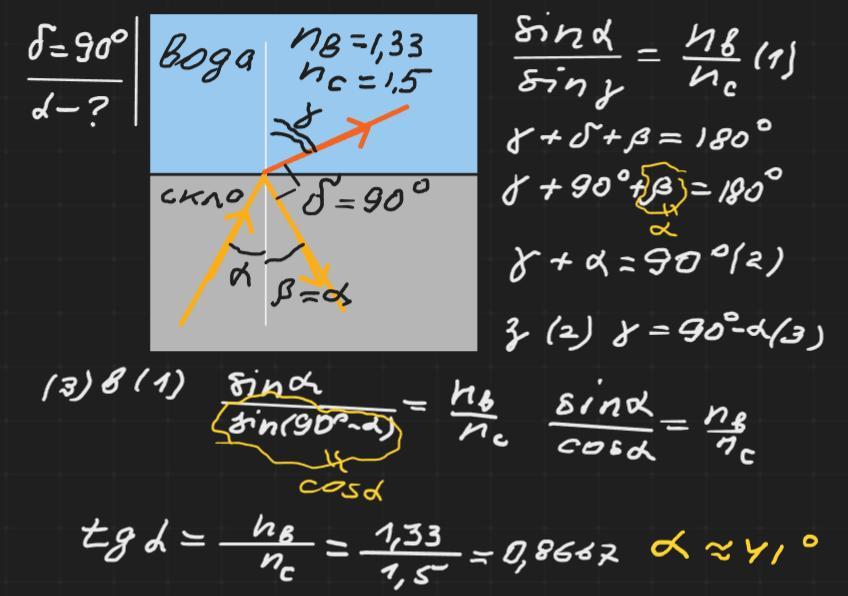 δ = 90°
α - ?
вода
nв = 1,33
nс = 1,5
γ
скло
δ = 90°
α
β = α
sinα / sinγ = nв / nс (1)
γ + δ + β = 180°
γ + 90° + β = 180°
α
γ + α = 90° (2)
з (2) γ = 90° - α (3)
(3) в (1) sinα / sin(90° - α) = nв / nс sinα / cosα = nв / nс
cosα
tg α = nв / nс = 1,33 / 1,5 = 0,8667 α ≈ 41°